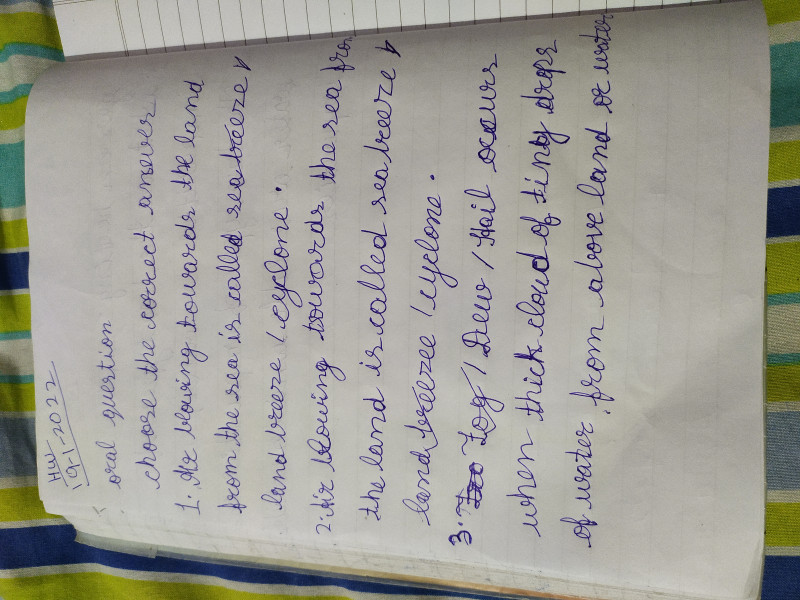 HW
19.1.2022
oral question
choose the correct answer
1. Air blowing towards the land
from the sea is called sea breeze
land breeze / cyclone.
2. Air blowing towards the sea from
the land is called sea breeze
land breezee / cyclone.
3. Fog / Dew / Hail occurs
when thick cloud of tiny drops
of water. from above land or water